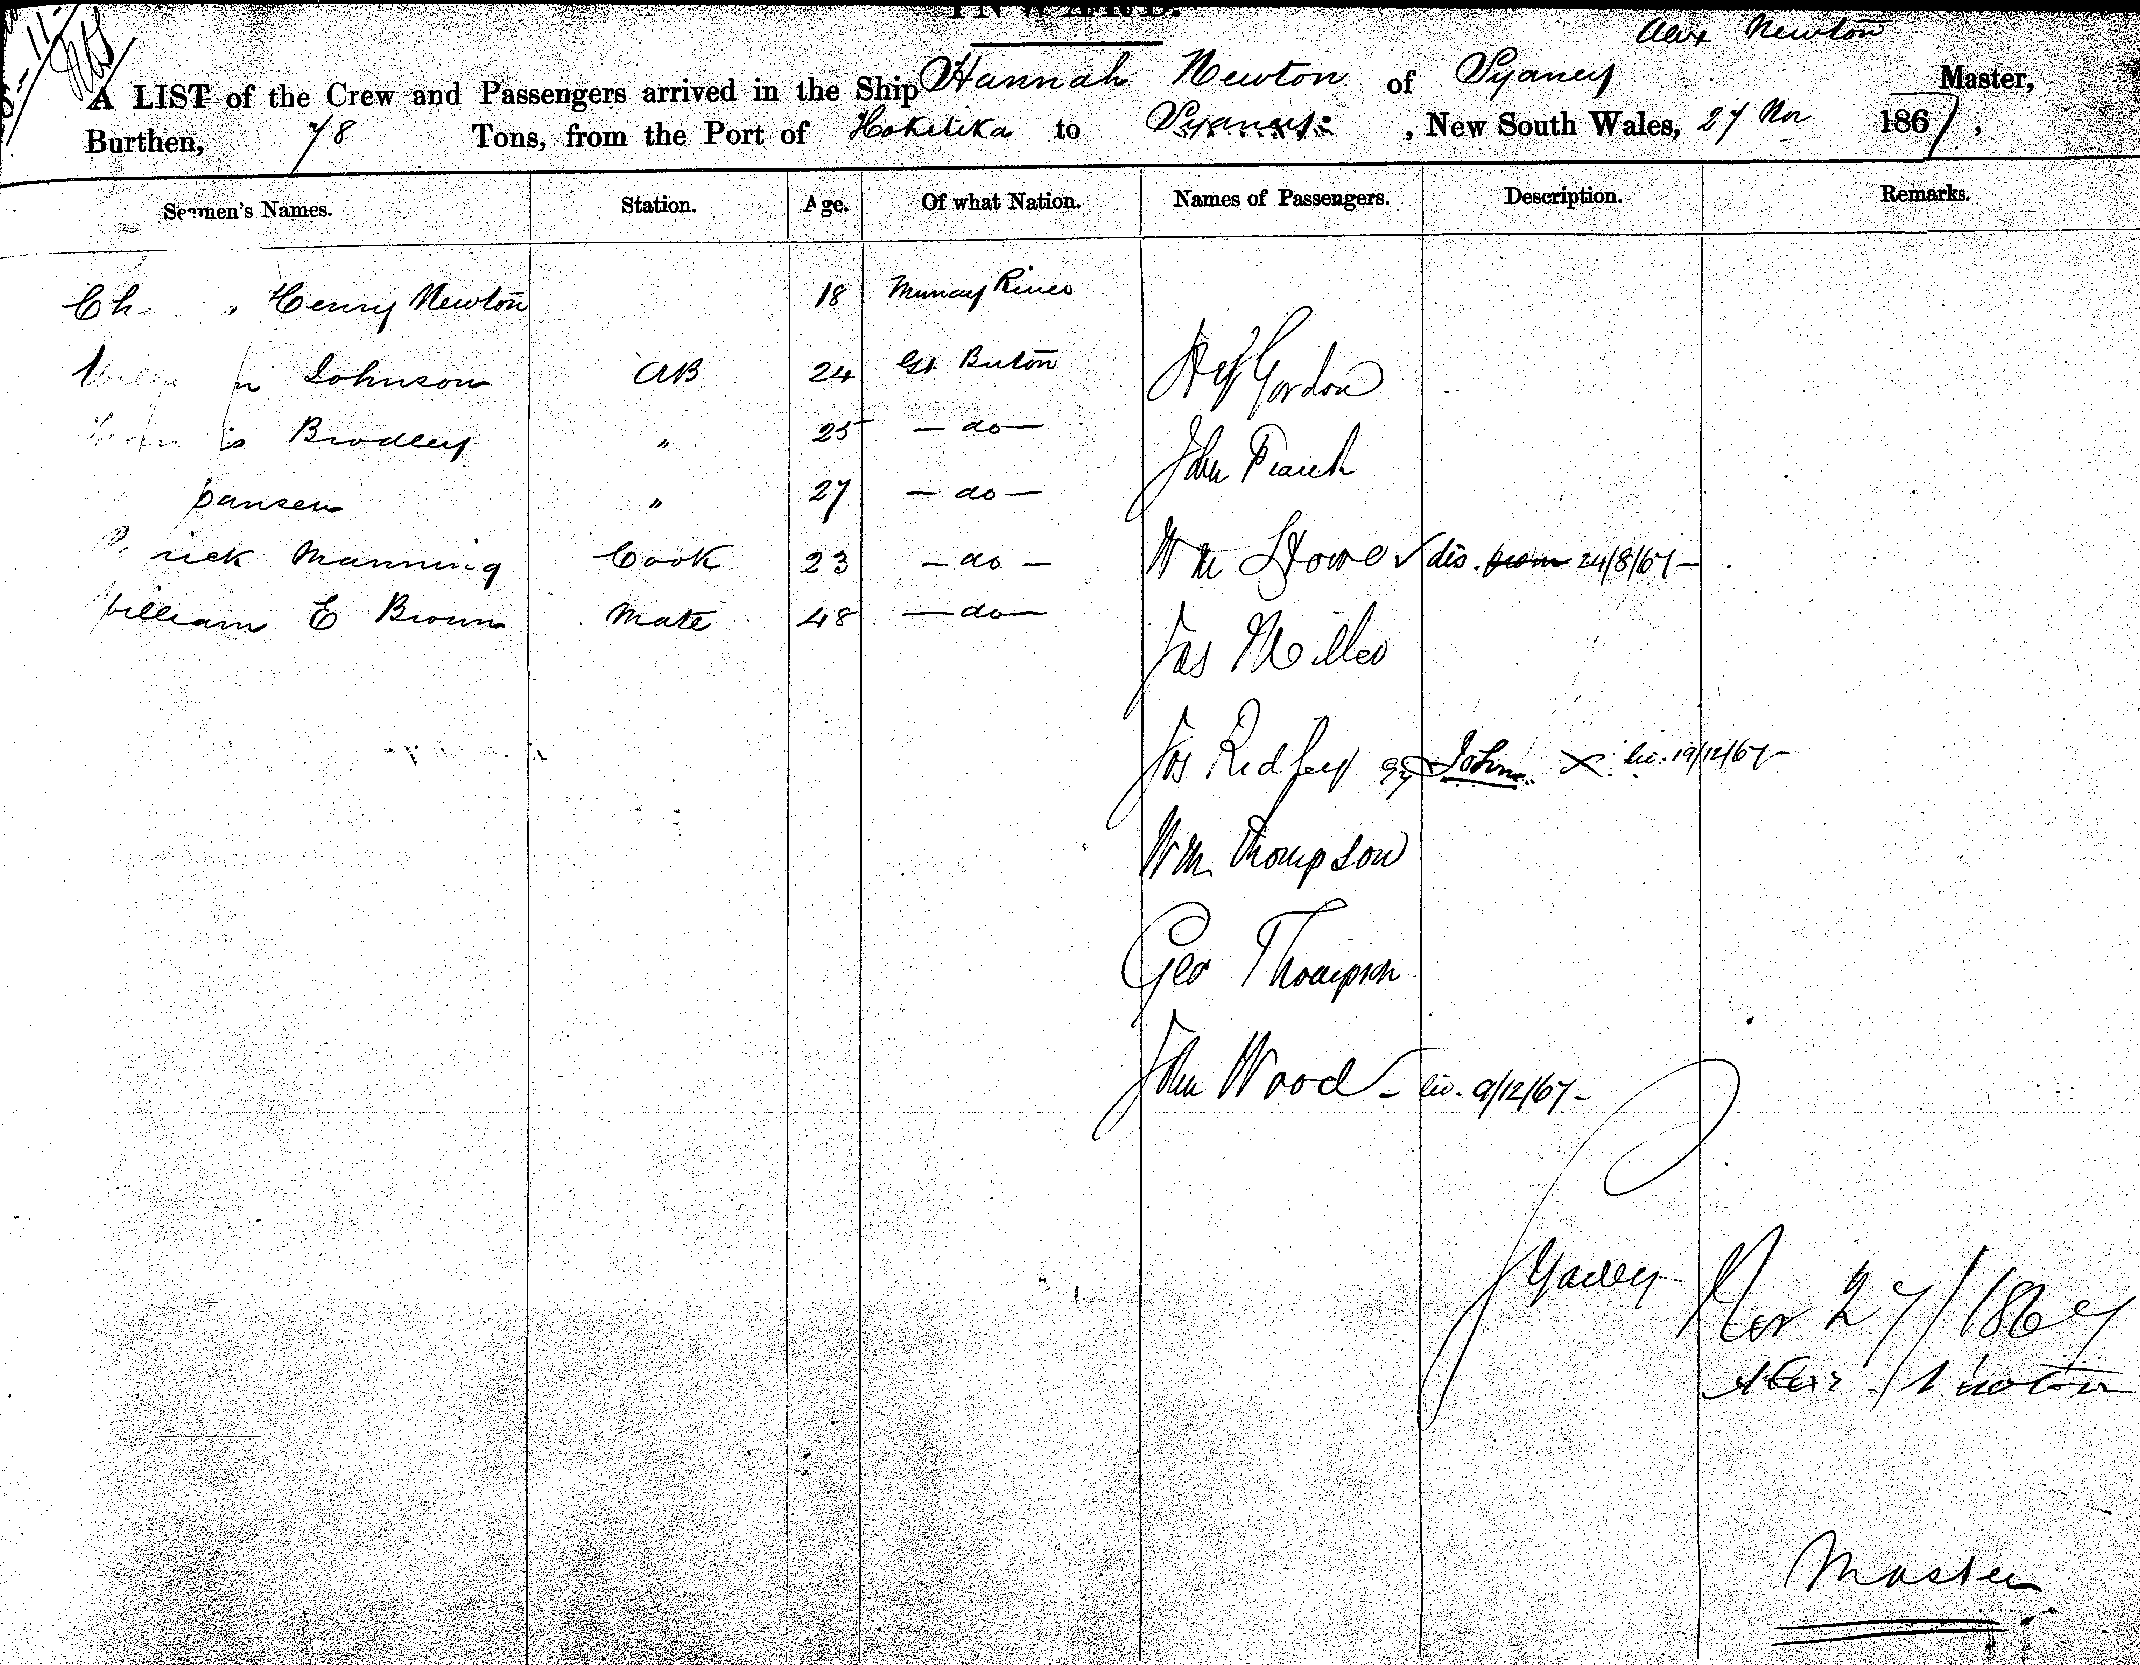 INWARD.
Alex Newton
A LIST of the Crew and Passengers arrived in the Ship Hannah Newton of Sydney Master,
Burthen, 78 Tons, from the Port of Hokitika to Sydney, New South Wales, 27 Nov 1867,
Seamen's Names. Station. Age. Of what Nation. Names of Passengers. Description. Remarks.
Henry Newton 18 Murray River
Johnson AB 24 Gt Briton
Gordon
Bradley " 25 — do —
John
" 27 — do —
Manning Cook 23 — do —
Wm Howe ✓ dis. from 24/8/67 —
William E Brown Mate 48 — do —
Jas Miller
Jos Redfey John × lic. 19/12/67 —
Wm Thompson
Geo Thompson
John Wood — lic. 9/12/67 —
Nov 27/1867
Alex Newton
Master